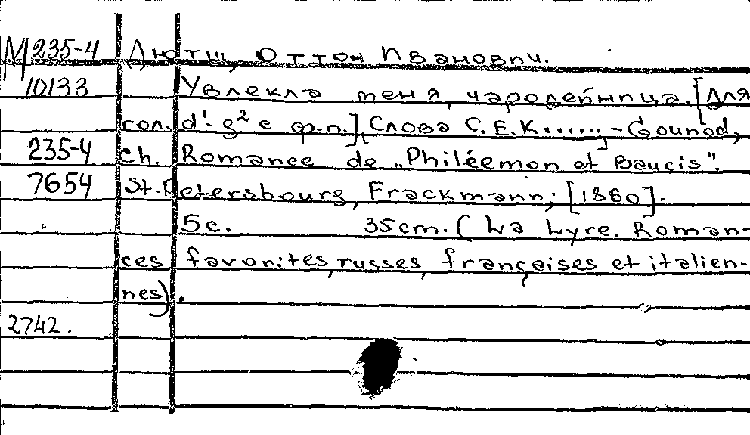 М 235-4 Дютш, Оттон Иванович.
10133 Увлекла меня, чародейница. [Для
гол. d¹-g² с ф.п.] Слова С.Е.К...... - Gounod,
235-4 Ch. Romance de „Philéemon et Baucis".
7654 St. Petersbourg, Frackmann, [1860].
5с. 35cm. (La Lyre. Roman-
ces favorites, russes, françaises et italien-
nes).
2742.